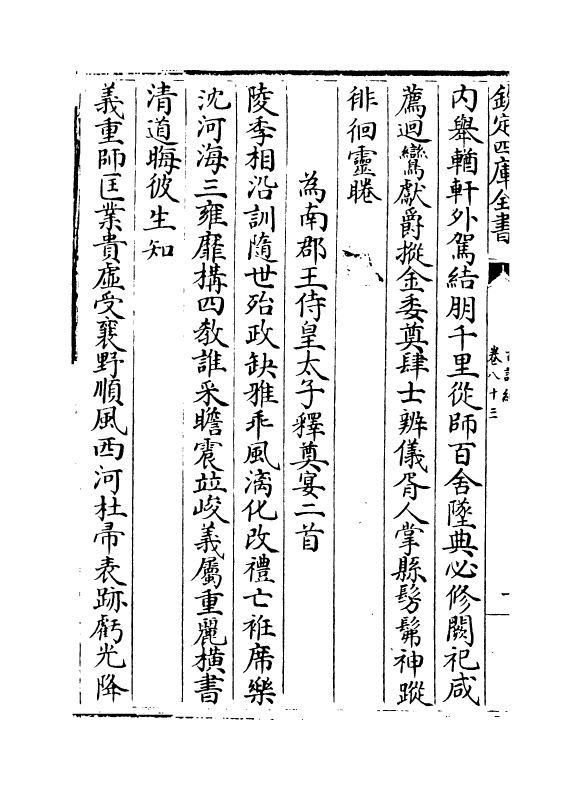 欽定四庫全書
卷八十三
內舉輶軒外駕結朋千里從師百舍墜典必修闕祀咸
薦迴鸞獻爵摐金委奠肆士辨儀胥人掌縣髣髴神蹤
徘徊靈睠
為南郡王侍皇太子釋奠宴二首
陵季相沿訓隨世殆政缺雅乖風漓化改禮亡袵席樂
沈河海三雍靡構四教誰采瞻震竝峻義屬重麗橫書
清道晦彼生知
義重師匡業貴虛受襄野順風西河杜帚表跡虧光降